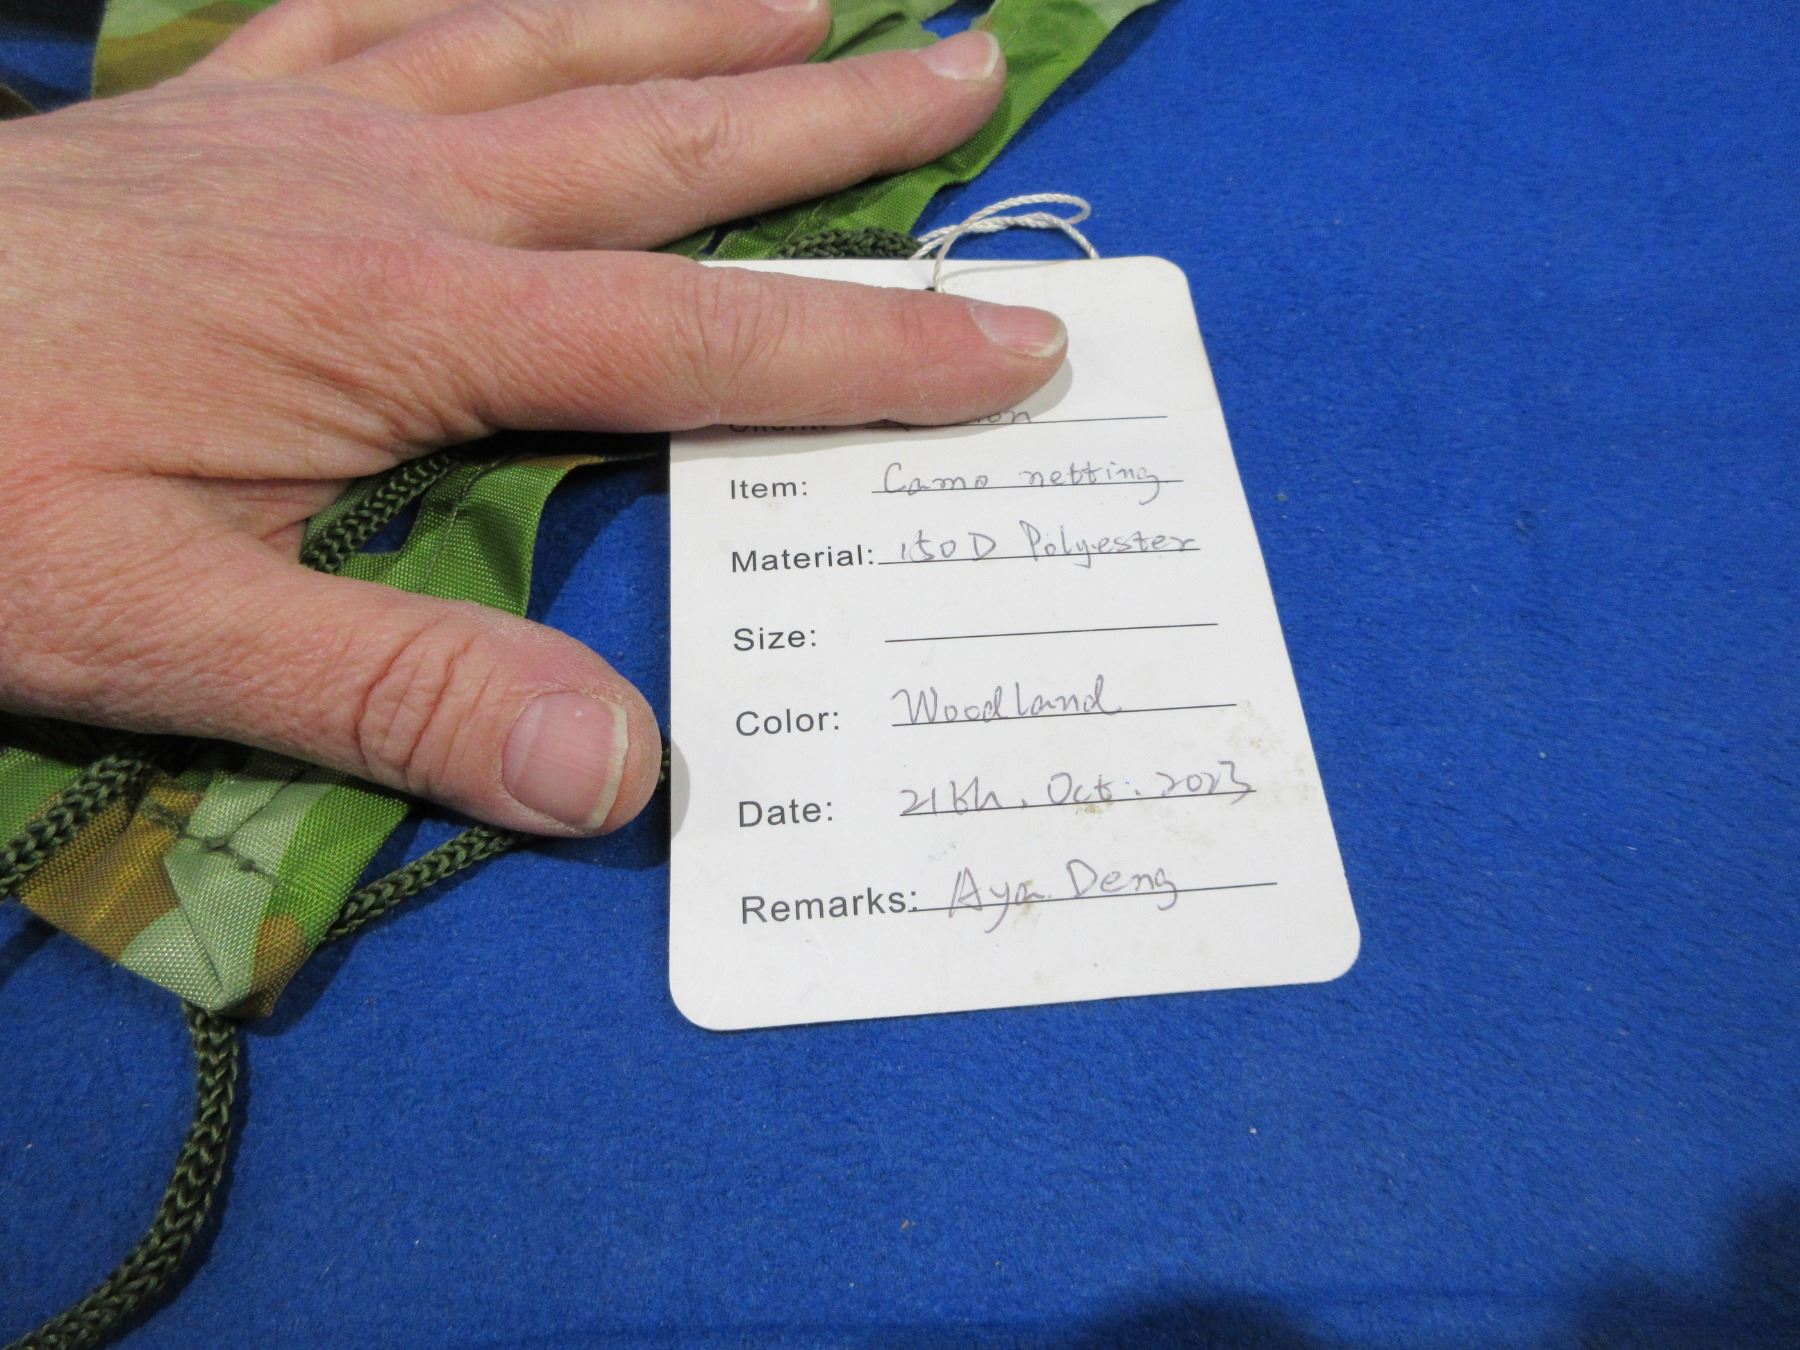 Client:
Item: Camo netting
Material: 150D Polyester
Size:
Color: Woodland
Date: 21th, Oct. 2023
Remarks: Aya Deng